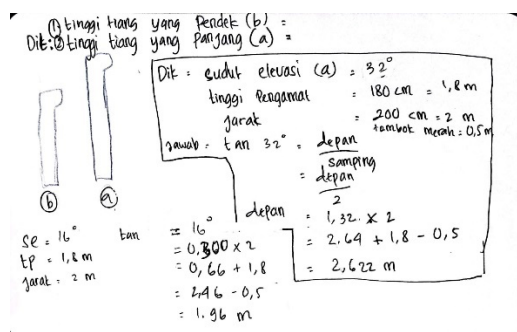 ① tinggi tiang yang Pendek (b) =
Dik: ② tinggi tiang yang Panjang (a) =
Dik = sudut elevasi (a) = 32°
tinggi Pengamat = 180 cm = 1,8 m
Jarak = 200 cm = 2 m
tembok merah = 0,5 m
Jawab = tan 32° = depan
samping
= depan
2
depan = 1,32. x 2
= 2.64 + 1,8 - 0,5
= 2,622 m
b
a
se = 16°
tp = 1,8 m
Jarak = 2 m
tan = 16°
= 0.300 x 2
= 0,66 + 1,8
= 2,46 - 0,5
= 1.96 m